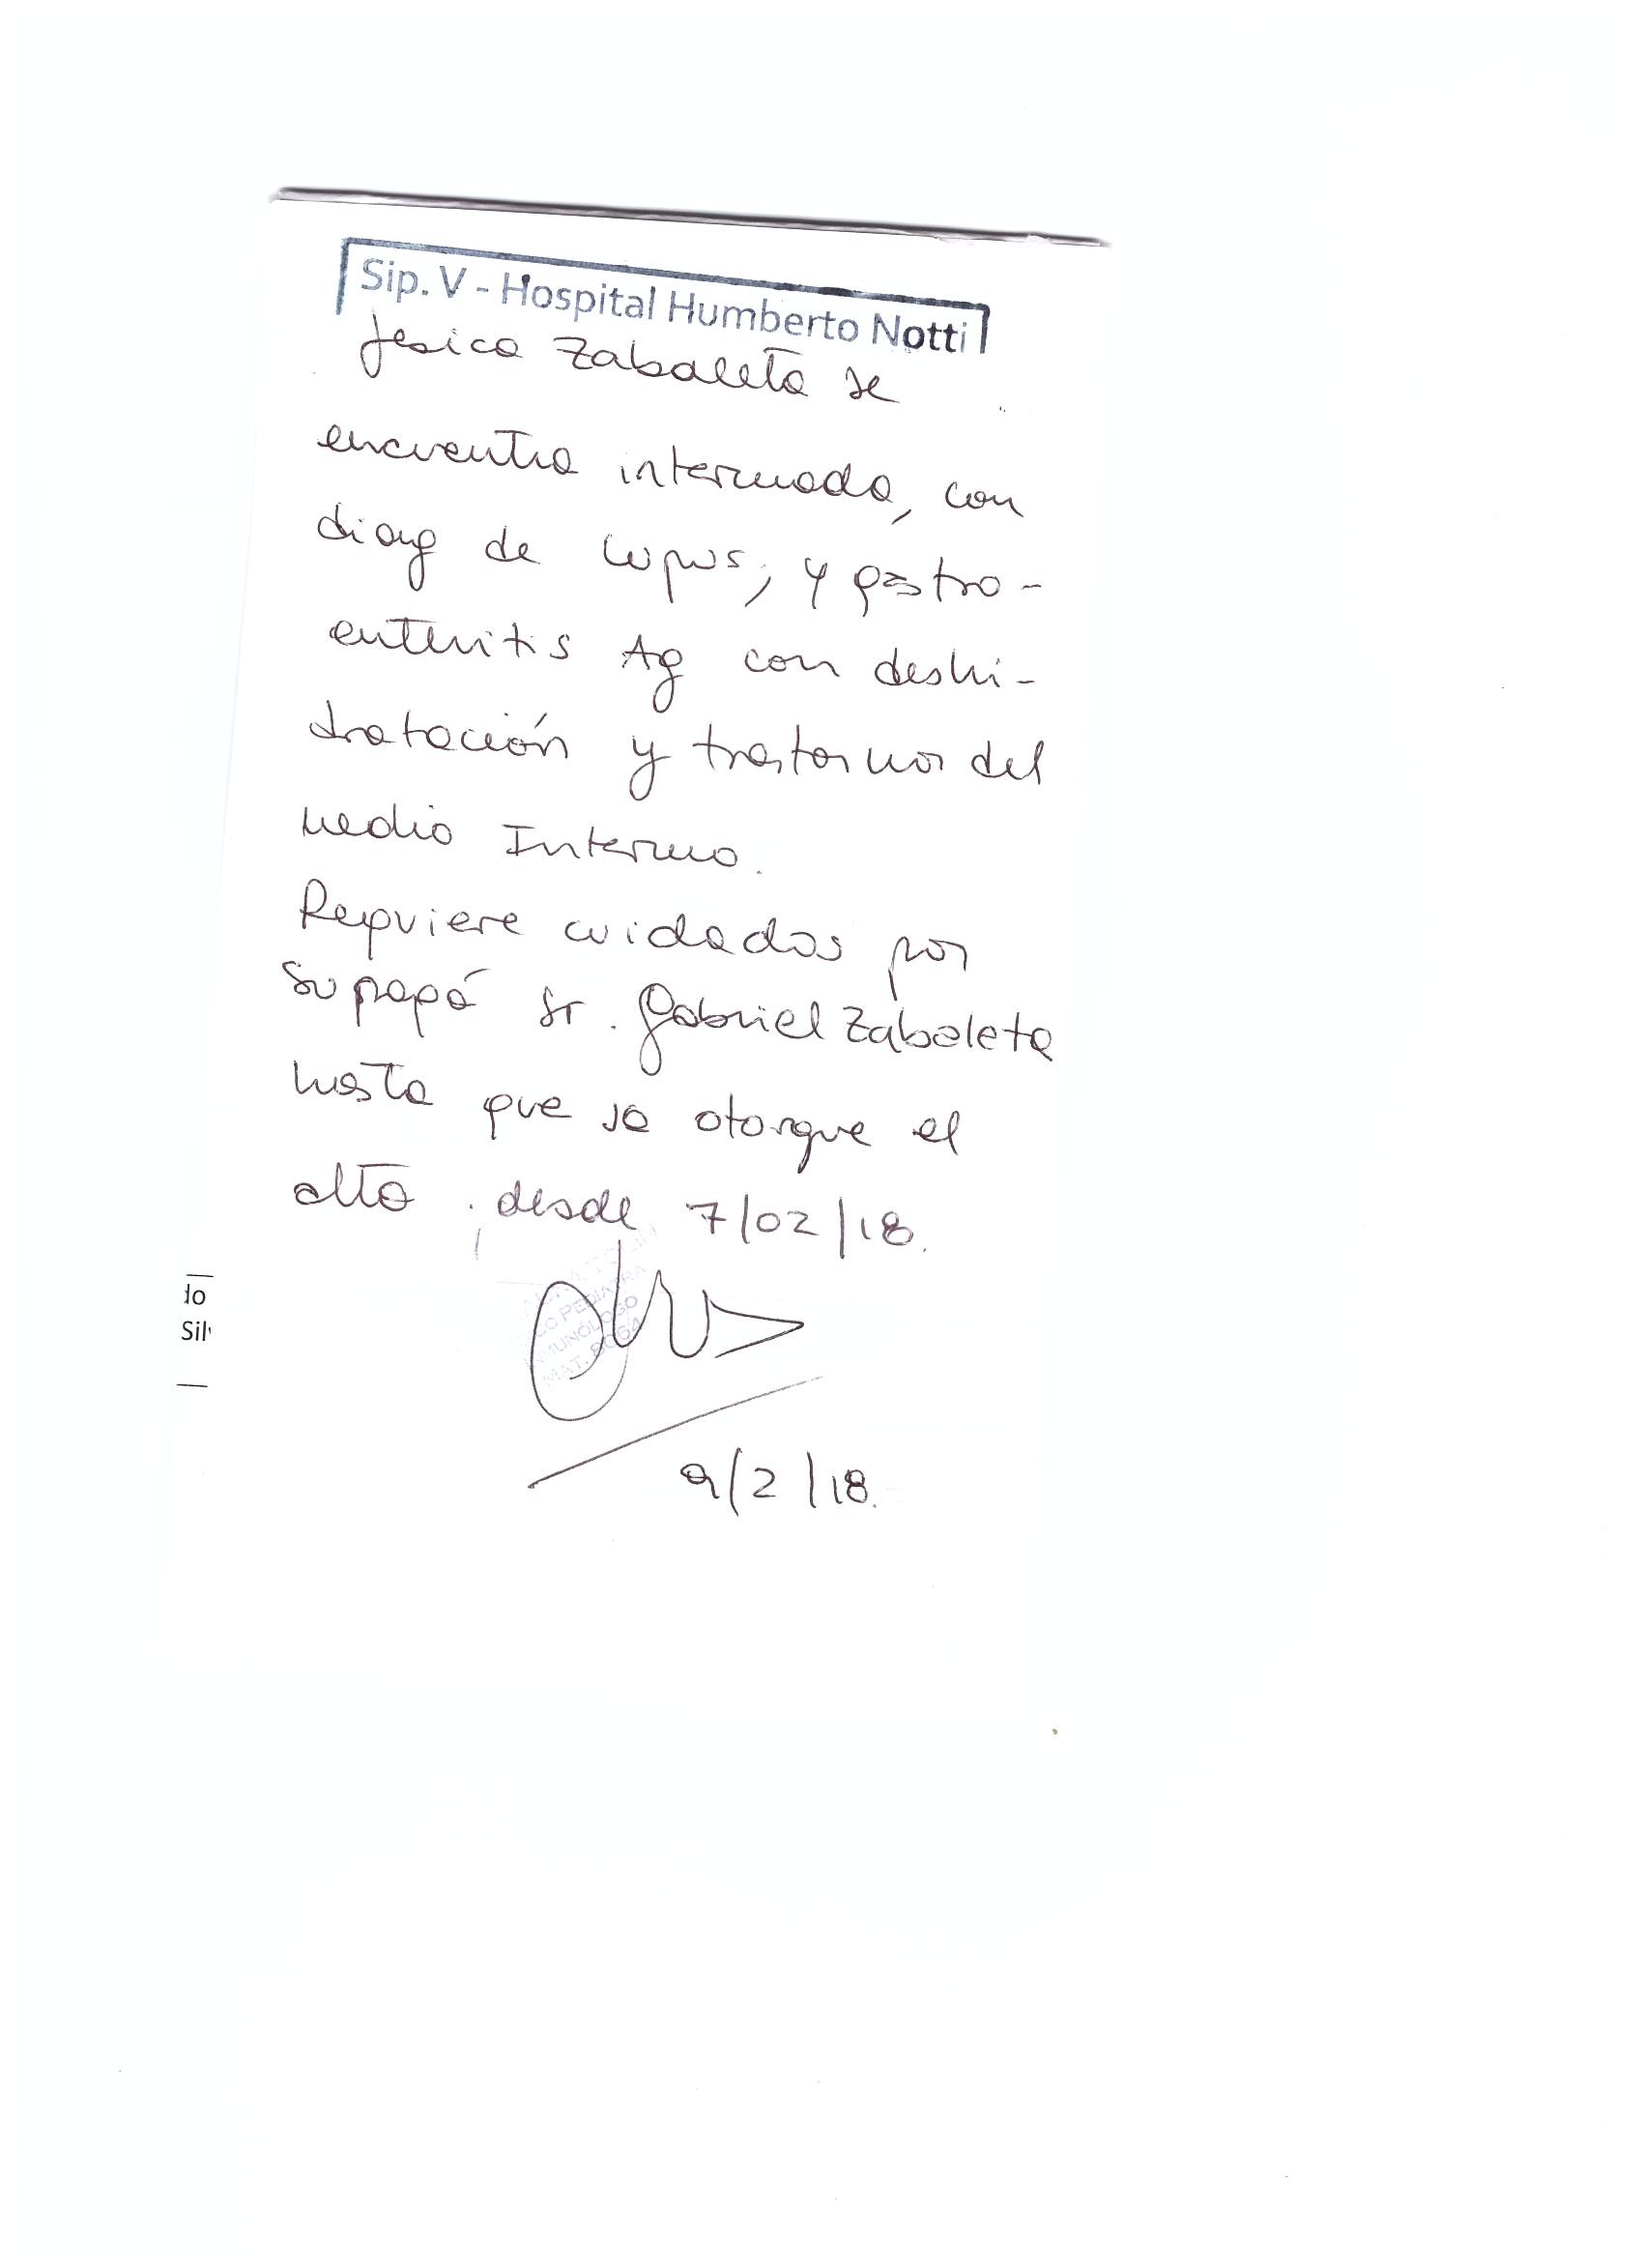 Sip. V - Hospital Humberto Notti
Jesica Zabaleta se
encuentra internada, con
diag de lupus, y gastro-
enteritis Ag con deshi-
dratación y trastornos del
medio Interno.
Requiere cuidados por
su papá Sr. Gabriel Zabaleta
hasta que se otorgue el
alta. desde 7/02/18.
CO PEDIATRA
INMUNÓLOGO
MAT. 8064
lo
Sil
9/2/18.